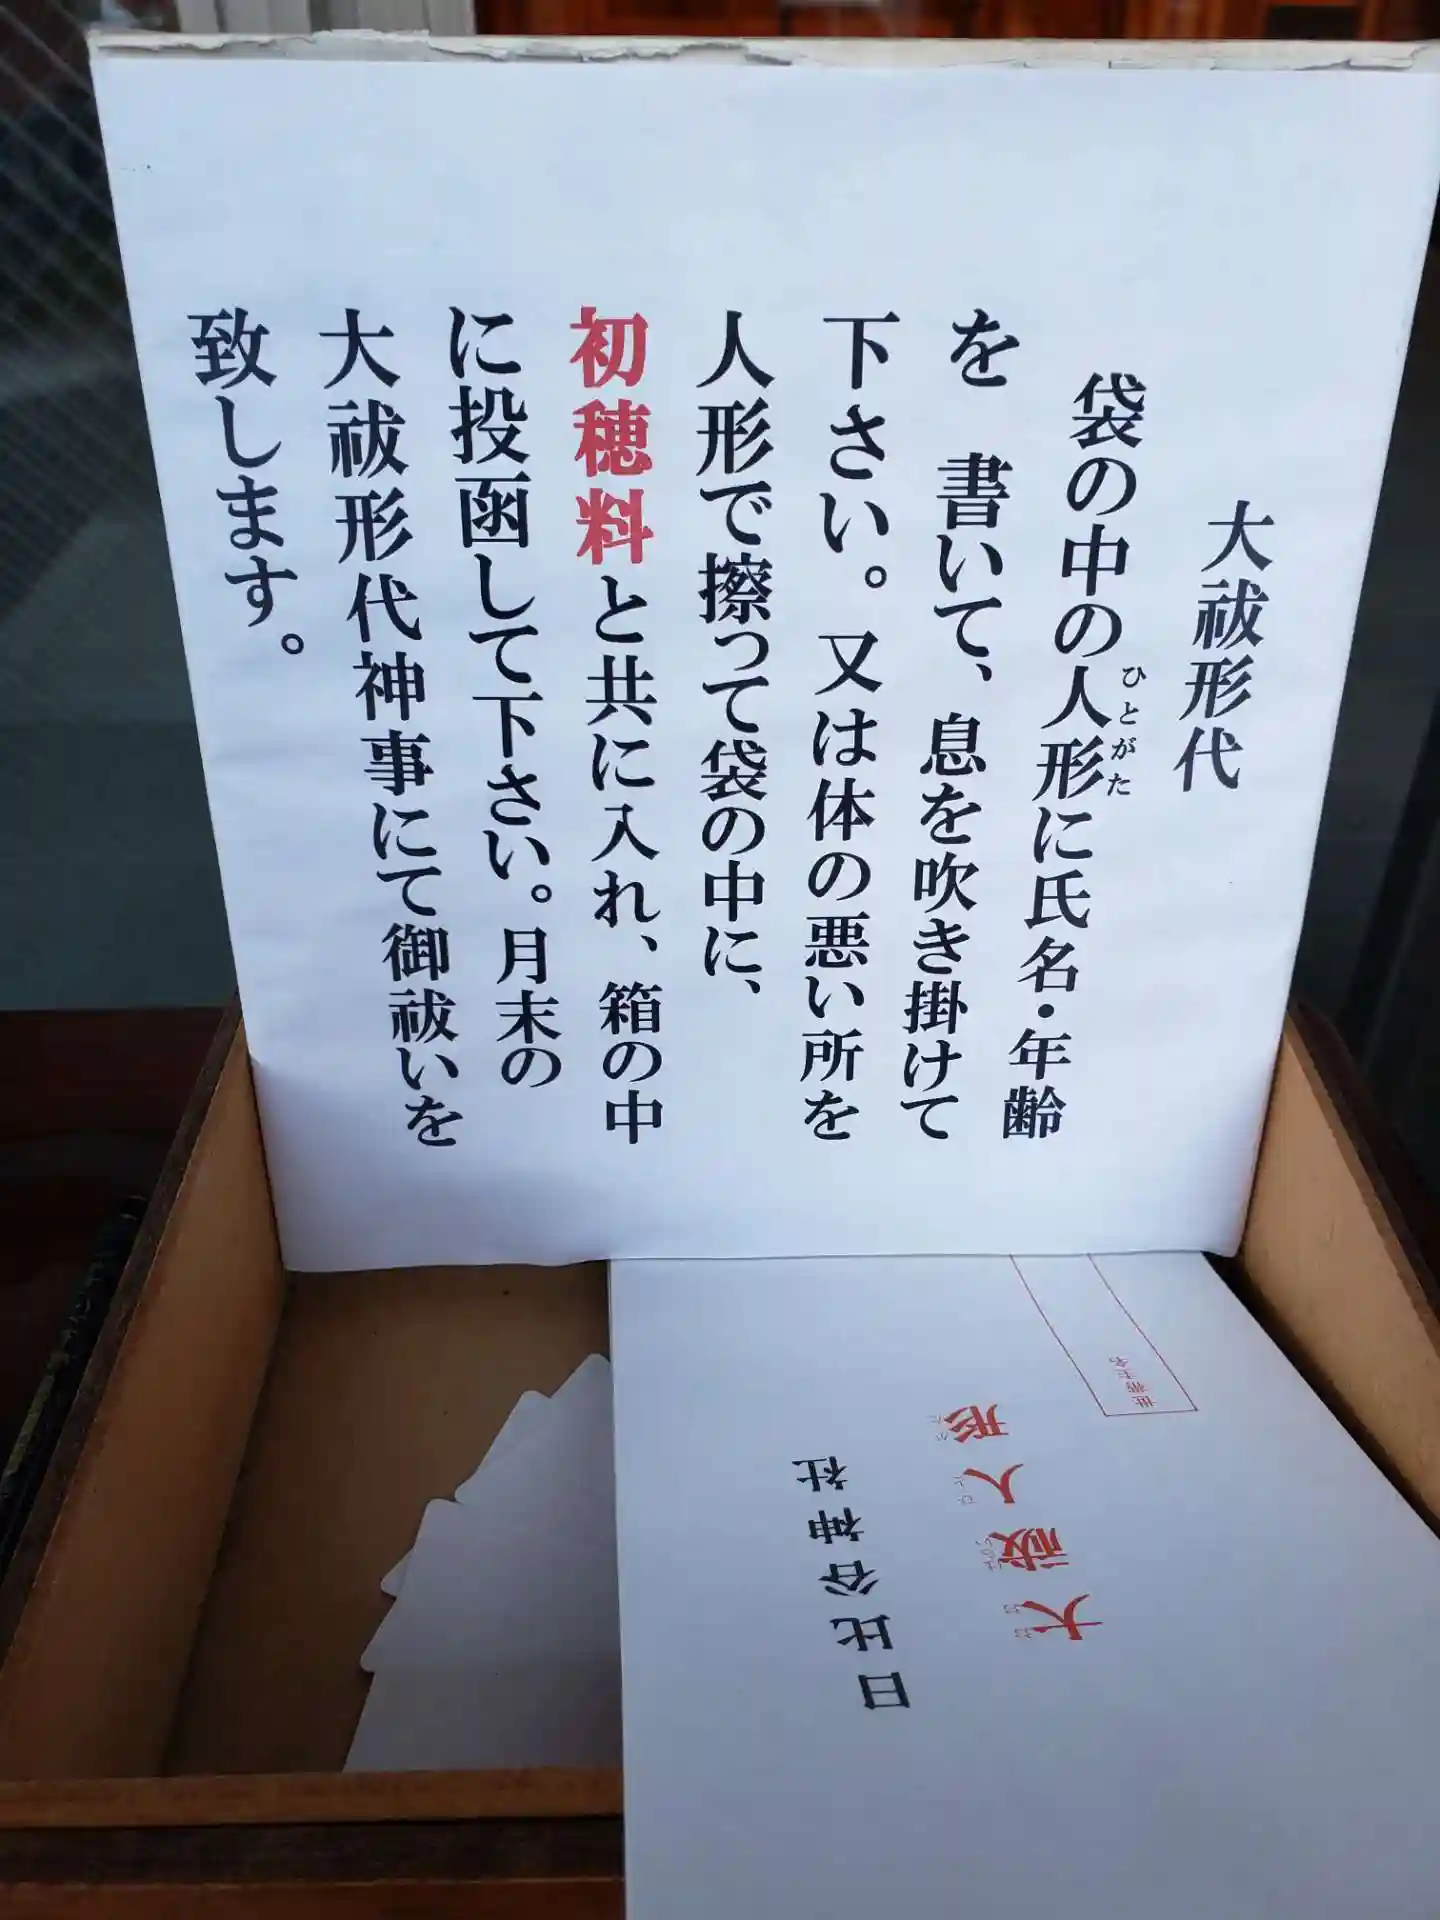 大祓形代
袋の中の人形に氏名・年齢
ひとがた
を　書いて、息を吹き掛けて
下さい。又は体の悪い所を
人形で擦って袋の中に、
初穂料と共に入れ、箱の中
に投函して下さい。月末の
大祓形代神事にて御祓いを
致します。
世帯主名
大祓人形
おおはらひひとがた
日比谷神社